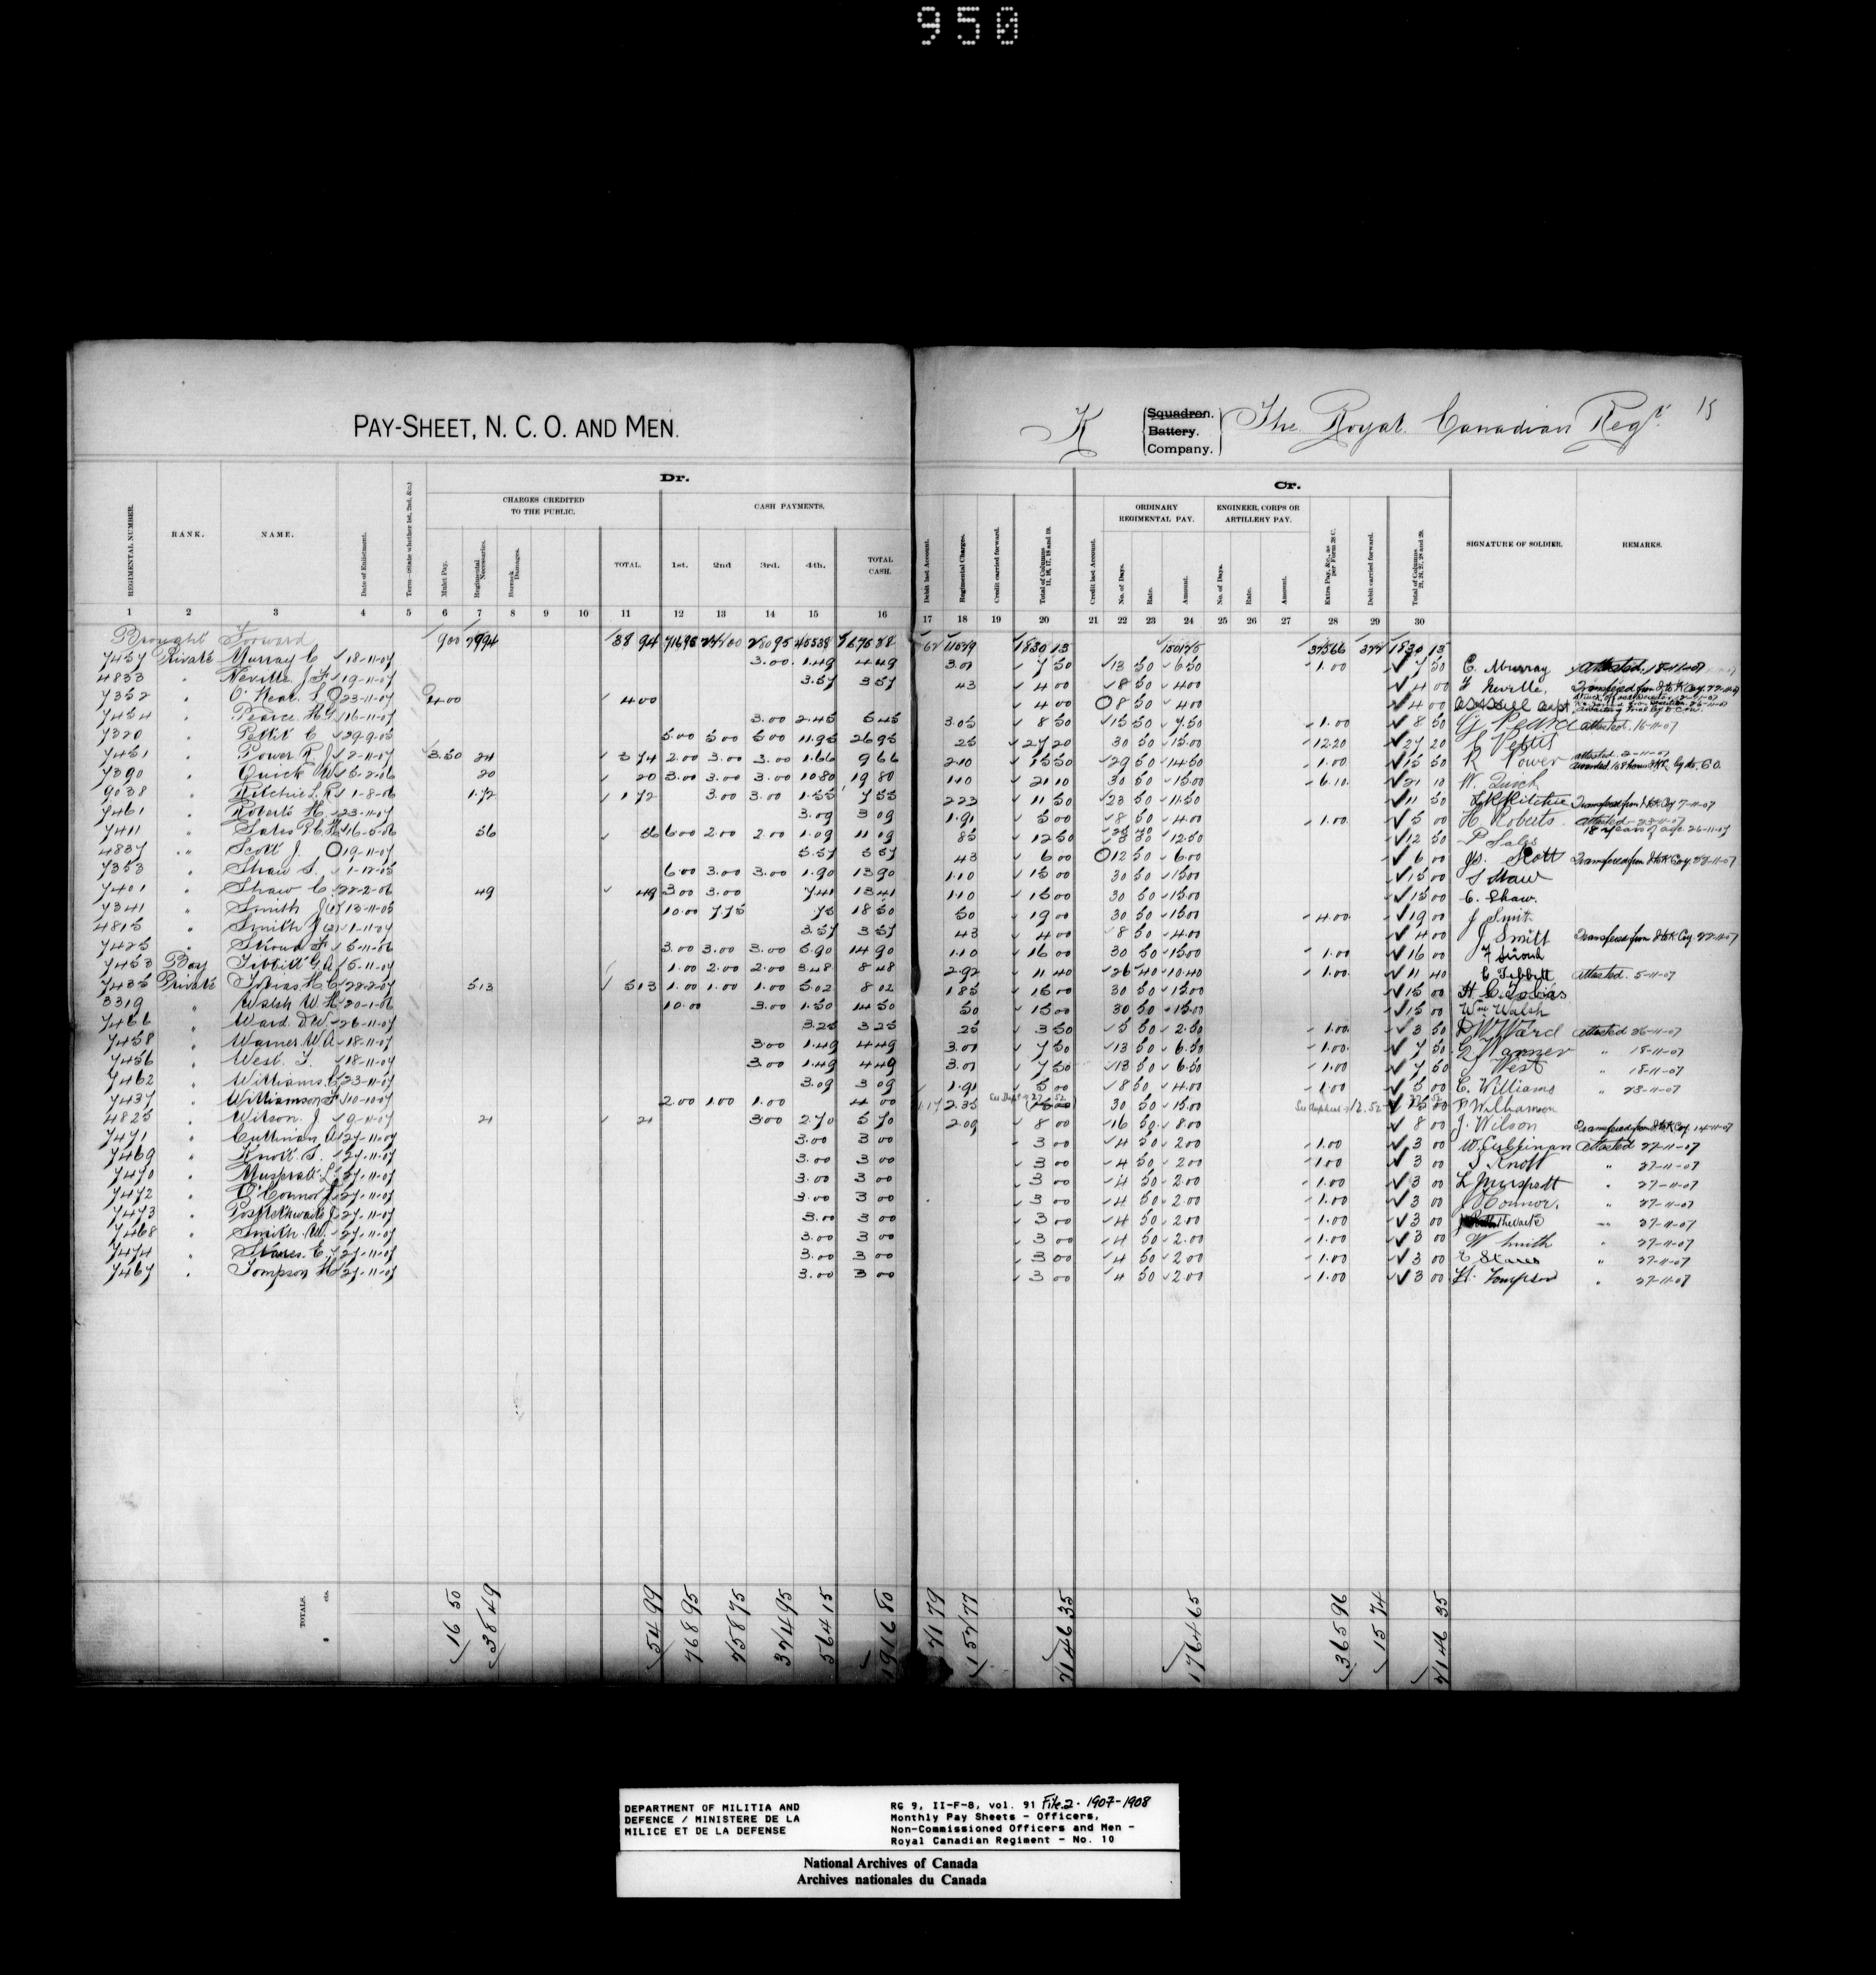 950
PAY-SHEET, N. C. O. AND MEN.
K
Squadron.
Battery.
Company.
The Royal Canadian Regt.
15
Dr.
Cr.
CHARGES CREDITED TO THE PUBLIC.
CASH PAYMENTS.
ORDINARY REGIMENTAL PAY.
ENGINEER, CORPS OR ARTILLERY PAY.
REGIMENTAL NUMBER. RANK. NAME. Date of Enlistment. Term—(State whether 1st, 2nd, &c.) Mulct Pay. Regimental Necessaries. Barrack Damages. TOTAL. 1st. 2nd 3rd. 4th. TOTAL CASH.
Debit last Account. Regimental Charges. Credit carried forward. Total of Columns 11, 16, 17, 18 and 19. Credit last Account. No. of Days. Rate. Amount. No. of Days. Rate. Amount. Extra Pay, &c., as per Form 28 C. Debit carried forward. Total of Columns 21, 24, 27, 28 and 29. SIGNATURE OF SOLDIER. REMARKS.
1 2 3 4 5 6 7 8 9 10 11 12 13 14 15 16 17 18 19 20 21 22 23 24 25 26 27 28 29 30
Brought Forward 9 00 38 94 1830 13 1830 13
7457 Private Murray C 18-11-07 3.00 1.49 4 49 3.01 7 50 13 50 6.50 1.00 7 50 C. Murray attested 18-11-07
4833 " Neville J F 19-11-07 3.57 3 57 43 4 00 8 50 4 00 4 00 F Neville. 22-11-07
7352 " O'Neal S 23-11-07 4 00 4 00 4 00 8 50 4 00 4 00
7454 " Pearce H G 16-11-07 3.00 2.45 5 45 3.05 8 50 15 50 7.50 1.00 8 50 attested 16-11-07
7320 " Pettit C 29-9-05 5.00 5 00 5 00 11.95 26 95 25 27 20 30 50 15.00 12.20 27 20 C Pettit
7451 " Power R J 2-11-07 3.50 24 3 74 2.00 3.00 3.00 1.66 9 66 2.10 15 50 29 50 14.50 1.00 15 50 R Power attested 2-11-07
7390 " Quick W 5-2-06 20 20 3.00 3.00 3.00 10 80 19 80 1.10 21 10 30 50 15.00 6.10 21 10 W. Quick
9038 " Ritchie L. R 1-8-06 1.72 1 72 3.00 3.00 1.55 7 55 2.23 11 50 23 50 11.50 11 50 L R Ritchie Transfered from Coy 7-11-07
7461 " Roberts H 23-11-07 3.09 3 09 1.91 5 00 8 50 4.00 1.00 5 00 H. Roberts. attested 23-11-07
7411 " Sales P. C. H 16-5-06 56 56 6.00 2.00 2.00 1.09 11 09 85 12 50 12.50 12 50 P Sales 18 years of age 26-11-07
4837 " Scott J. 19-11-07 5.57 5 57 43 6 00 12 50 6.00 6 00 Jas. Scott 22-11-07
7353 " Shaw S. 1-12-05 6.00 3.00 3.00 1.90 13 90 1.10 15 00 30 50 15.00 15 00 S Shaw
7401 " Shaw C. 22-2-06 49 49 3.00 3.00 7.41 13 41 1.10 15 00 30 50 15.00 15 00 C. Shaw.
7341 " Smith J (1) 13-11-05 10.00 7.75 75 18 50 50 19 00 30 50 15.00 4.00 19 00 J Smith
4815 " Smith J (2) 1-11-04 3.57 3 57 43 4 00 8 50 4.00 4 00 J Smith 22-11-07
7425 " Stroud F 5-11-06 3.00 3.00 3.00 5.90 14 90 1.10 16 00 30 50 15.00 1.00 16 00 F Stroud
7453 Boy Tebbitt G A 5-11-07 1.00 2.00 2.00 3.48 8 48 2.92 11 40 26 40 10.40 1.00 11 40 G Tebbett attested. 5-11-07
7435 Private Tobias H C 28-2-07 5.13 5 13 1.00 1.00 1.00 5.02 8 02 1.85 15 00 30 50 15.00 15 00 H C Tobias
3319 " Walsh W. H 20-1-06 10.00 3.00 1.50 14 50 50 15 00 30 50 15.00 15 00 Wm Walsh
7466 " Ward D W. 26-11-07 3.25 3 25 25 3 50 5 50 2.50 1.00 3 50 D W Ward attested 26-11-07
7458 " Warner W. A 18-11-07 3.00 1.49 4 49 3.01 7 50 13 50 6.50 1.00 7 50 Warner " 18-11-07
7456 " West. J 18-11-07 3.00 1.49 4 49 3.01 7 50 13 50 6.50 1.00 7 50 J West " 18-11-07
7462 " Williams C 23-11-07 3.09 3 09 1.91 5 00 8 50 4.00 1.00 5 00 C. Williams " 23-11-07
7437 " Williamson F 10-10-07 2.00 1.00 1.00 4 00 1.17 2.35 30 50 15.00 12.52 F Williamson
4825 " Wilson. J 9-11-07 21 21 3.00 2.70 5 70 2.09 8 00 16 50 8.00 8 00 J. Wilson 14-11-07
7471 " Cullinan W 27-11-07 3.00 3 00 3 00 4 50 2.00 1.00 3 00 W. Cullinan attested 27-11-07
7469 " Knott S. 27-11-07 3.00 3 00 3 00 4 50 2.00 1.00 3 00 S Knott " 27-11-07
7470 " Muspratt L 27-11-07 3.00 3 00 3 00 4 50 2.00 1.00 3 00 L Muspratt " 27-11-07
7472 " O'Connor J 27-11-07 3.00 3 00 3 00 4 50 2.00 1.00 3 00 J O'Connor. " 27-11-07
7473 " Postlethwaite J 27-11-07 3.00 3 00 3 00 4 50 2.00 1.00 3 00 " 27-11-07
7468 " Smith W. 27-11-07 3.00 3 00 3 00 4 50 2.00 1.00 3 00 W Smith " 27-11-07
7474 " Stares. E. 27-11-07 3.00 3 00 3 00 4 50 2.00 1.00 3 00 E Stares " 27-11-07
7467 " Tompson H 27-11-07 3.00 3 00 3 00 4 50 2.00 1.00 3 00 H. Tompson " 27-11-07
TOTALS. $ cts. 16 50 38 49 54 99 564 15 1916 80 1764 65 365 96 15 74
DEPARTMENT OF MILITIA AND
DEFENCE / MINISTERE DE LA
MILICE ET DE LA DEFENSE
RG 9, II-F-8, vol. 91 File 2. 1907-1908
Monthly Pay Sheets - Officers,
Non-Commissioned Officers and Men -
Royal Canadian Regiment - No. 10
National Archives of Canada
Archives nationales du Canada